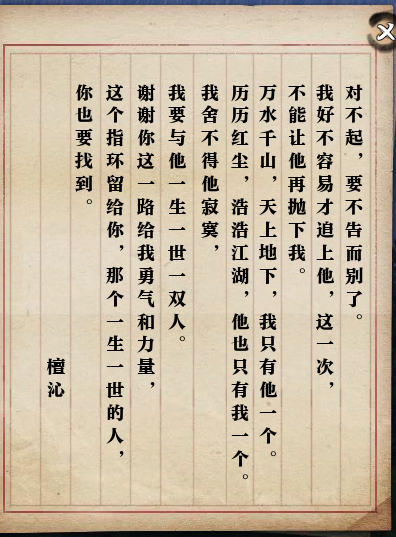 对不起，要不告而别了。
我好不容易才追上他，这一次，
不能让他再抛下我。
万水千山，天上地下，我只有他一个。
历历红尘，浩浩江湖，他也只有我一个。
我舍不得他寂寞，
我要与他一生一世一双人。
谢谢你这一路给我勇气和力量，
这个指环留给你，那个一生一世的人，
你也要找到。
檀沁